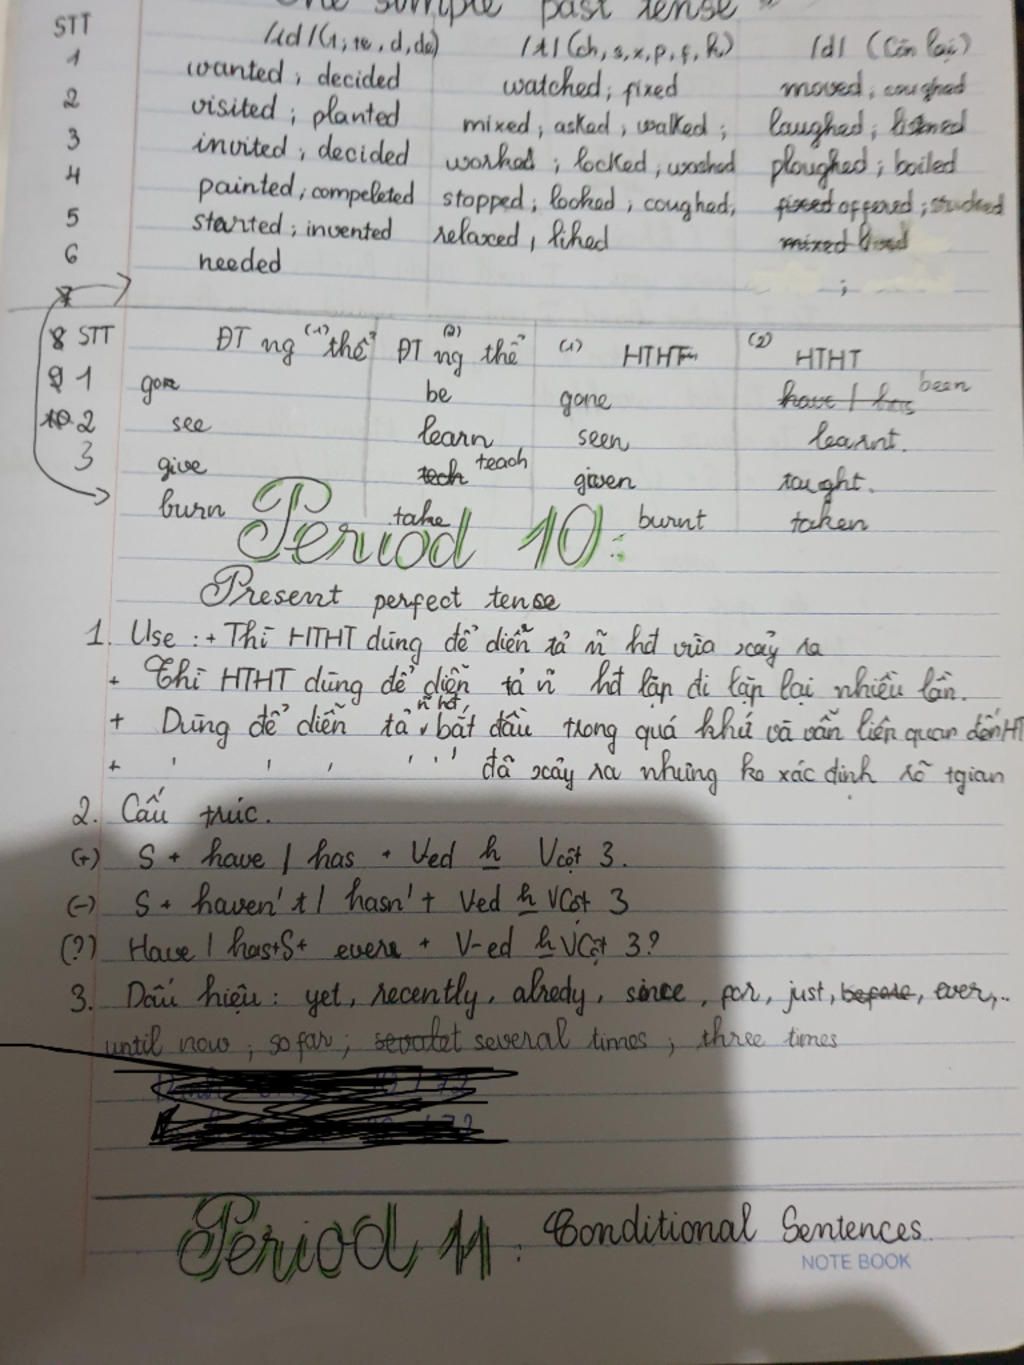 The simple past tense "
STT /id/ (t, te, d, de) /t/ (ch, s, x, p, f, k) /d/ (Còn lại)
1 wanted ; decided watched ; fixed moved ; coughed
2 visited ; planted mixed ; asked ; walked ; laughed ; listened
3 invited ; decided worked ; locked ; washed ploughed ; boiled
4 painted ; compeleted stopped ; looked ; coughed, fixed offered ; studied
5 started ; invented relaxed , liked mixed lived
6 needed ;
7
8 STT ĐT ng (1) thể ĐT (2) ng thể (1) HTHT (2) HTHT
9 1 gone be gone have / has been
10. 2 see learn seen learnt.
3 give tech teach given taught.
burn take burnt taken
Period 10 :
Present perfect tense
1. Use : + Thì HTHT dùng để diễn tả ñ hđ vừa xảy ra
+ Thì HTHT dùng để diễn tả ñ hđ lặp đi lặp lại nhiều lần.
+ Dùng để diễn tả ñ hđ, bắt đầu trong quá khứ và vẫn liên quan đến HT
+ ' ' ' ' ' ' đã xảy ra nhưng ko xác định rõ tgian
2. Cấu trúc.
(+) S + have / has + Ved h Vcột 3.
(-) S + haven't / hasn't + Ved h VCột 3
(?) Have / has+S+ evere + V-ed h VCột 3?
3. Dấu hiệu : yet, recently, alredy, since, for, just, before, ever,..
until now ; so far ; several times ; three times
Period 11 : Conditional Sentences.
NOTE BOOK